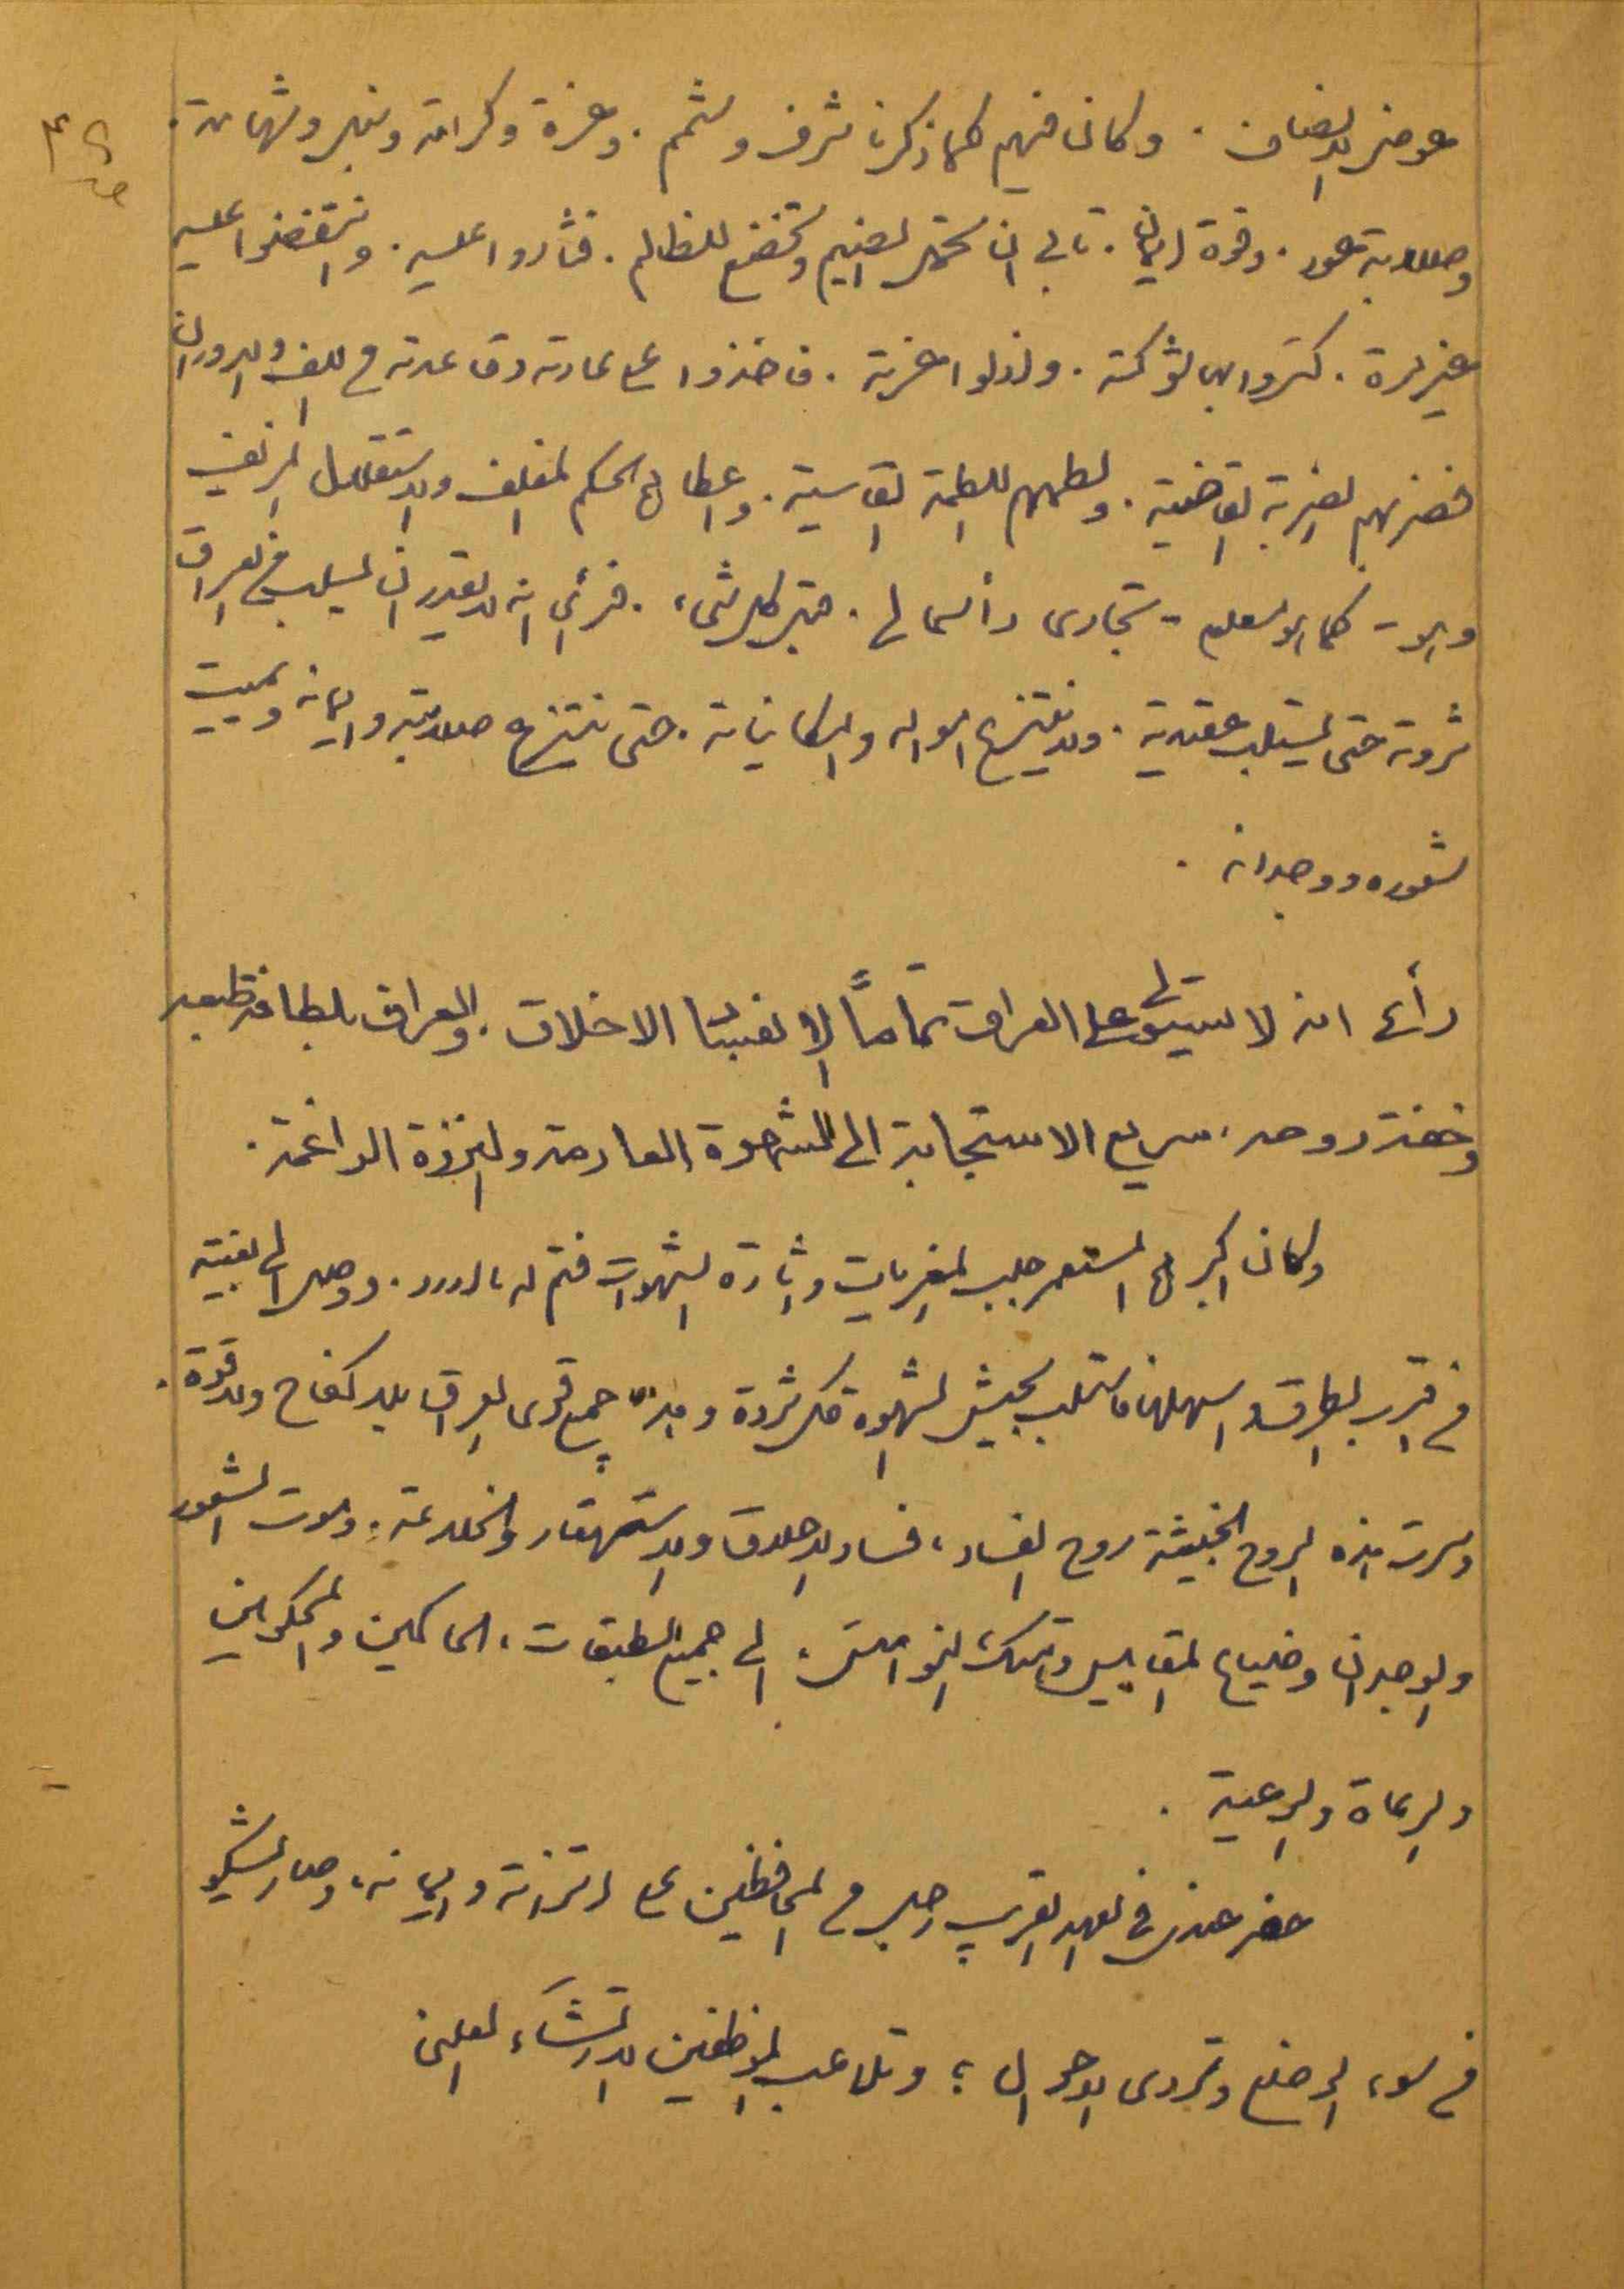 عوض الانصاف . وكان فيهم كما ذكرنا شرف وشمم . وعزة وكرامة ونبل وشهامة .
وصلابة عود . وقوة ايمان . تأبى ان تحتمل الضيم وتخضع للظالم . فثاروا عليه . وانتقضوا عليه
غير مرة . كسروا بها شوكته . واذلوا عزته . فاخذوا على عادته وقاعدته في اللف والدوران
فضربهم الضربة القاضية . ولطمهم اللطمة القاسية . واعطاهم الحكم المغلف والاستقلال المزيف
وهو - كما هو معلوم - تجارى رأسمالى . قبل كل شيء . فرأى انه لا يقدر ان يسلب من العراق
ثروته حتى يستلب عقيدته . ولا ينتزع امواله وامكانياته . حتى ينتزع صلابته وايمانه ويميت
شعوره ووجدانه .
رأى انه لا يستولى على العراق تماماً الا بفساد الاخلاق . والعراق بلطافة طبعه
وخفة روحه ، سريع الاستجابة الى الشهوة العارمة والنزوة الراغمة .
وكان اكبر هم المستعمر جلب المغريات واثارة الشهوات فتم له ما اراد . ووصل الى بغيته
من اقرب الطرق واسهلها فاستلب بجيش الشهوة كل ثروة وابتز جميع قوى العراق بلا كفاح ولا قوة .
وسرت هذه الروح الخبيثة روح الفساد ، فساد الاخلاق والاستهتار والخلاعة . وموت الشعور
والوجدان وضياع المقاييس وهتك النواميس ، الى جميع الطبقات ، الحاكمين والمحكومين
والرعاة والرعية .
حضر عندى في العهد القريب رجل من المحافظين على اتزانه وايمانه ، وصار يشكو
من سوء الوضع وتردى الاحوال ؛ وتلاعب الموظفين بالارتشاء العلني